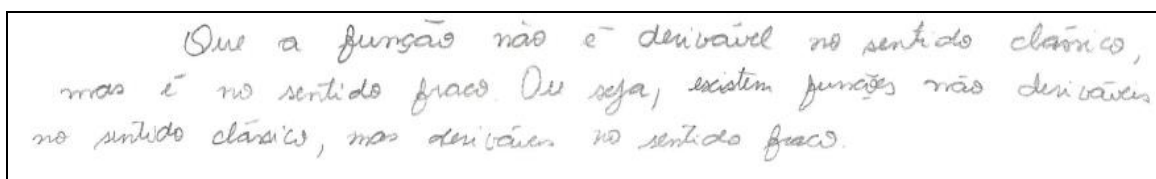 Que a função não é derivável no sentido clássico,
mas é no sentido fraco. Ou seja, existem funções não deriváveis
no sentido clássico, mas deriváveis no sentido fraco.